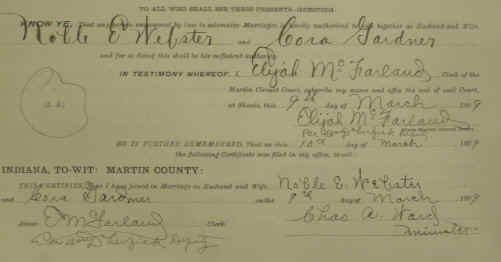 TO ALL WHO SHALL SEE THESE PRESENTS—GREETING.
KNOW YE, That any person empowered by law to solemnize Marriages is hereby authorized to join together as Husband and Wife
Noble E Webster and Cora Gardner
and for so doing this shall be his sufficient authority.
IN TESTIMONY WHEREOF, I, Elijah McFarland Clerk of the
Martin Circuit Court, subscribe my name and affix the seal of said Court,
at Shoals, this 9th day of March 190
Elijah McFarland
BE IT FURTHER REMEMBERED, That on this day of March 190
the following Certificate was filed in my office, to-wit:
INDIANA, TO-WIT: MARTIN COUNTY:
THIS CERTIFIES, That I have joined in Marriage as Husband and Wife Noble E. Webster
and Cora Gardner on the 9th day of March 190
Chas A. Ward
McFarland Clerk
Deputy Minister